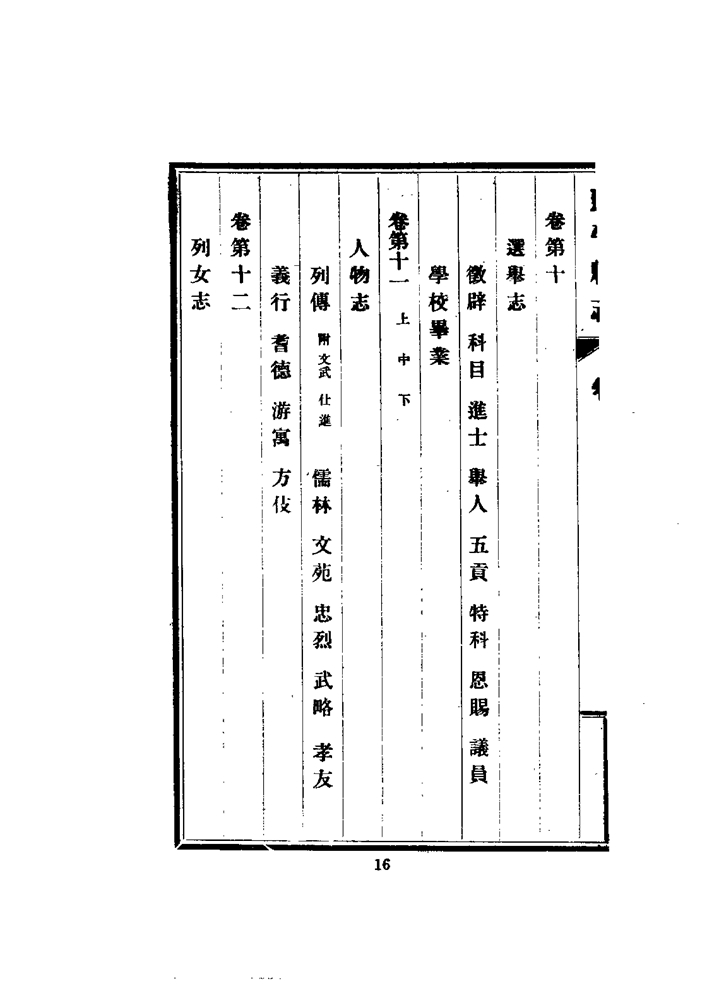 卷第十
選舉志
徵辟 科目 進士 舉人 五貢 特科 恩賜 議員
學校畢業
卷第十一 上 中 下
人物志
列傳 附文武仕進 儒林 文苑 忠烈 武略 孝友
義行 耆德 游寓 方伎
卷第十二
列女志
16